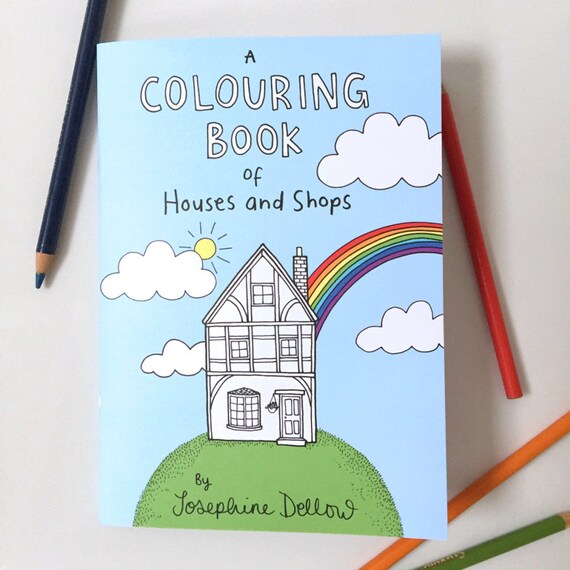 A
COLOURING
BOOK
of
Houses and Shops
By
Josephine Dellow